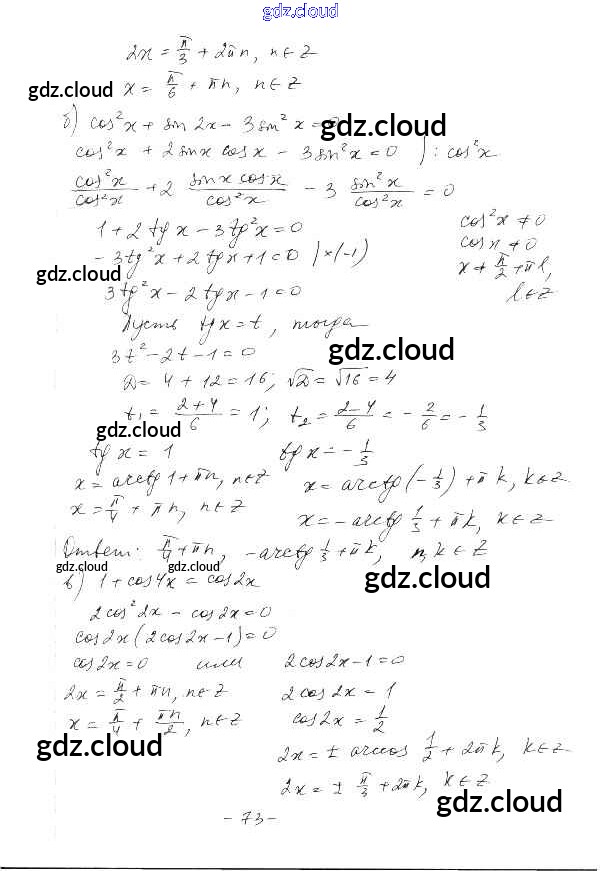 gdz.cloud
2x = π/3 + 2πn, n∈Z
gdz.cloud x = π/6 + πn, n∈Z
б) cos²x + sin 2x - 3sin²x = 0
gdz.cloud
cos²x + 2sinx cosx - 3sin²x = 0 ) : cos²x
cos²x/cos²x + 2 sinx cosx/cos²x - 3 sin²x/cos²x = 0
1 + 2tgx - 3tg²x = 0
cos²x ≠ 0
-3tg²x + 2tgx + 1 = 0 |×(-1)
cosx ≠ 0
gdz.cloud
x ≠ π/2 + πl,
3tg²x - 2tgx - 1 = 0
l∈Z
Пусть tgx = t, тогда
3t² - 2t - 1 = 0
gdz.cloud
D = 4 + 12 = 16; √D = √16 = 4
t₁ = (2+4)/6 = 1; t₂ = (2-4)/6 = -2/6 = -1/3
gdz.cloud
tgx = 1 tgx = -1/3
x = arctg1 + πn, n∈Z x = arctg(-1/3) + πk, k∈Z
x = π/4 + πn, n∈Z x = -arctg 1/3 + πk, k∈Z
gdz.cloud
Ответ: π/4 + πn, -arctg 1/3 + πk, n,k∈Z
gdz.cloud gdz.cloud gdz.cloud
в) 1 + cos4x = cos2x
2cos²2x - cos2x = 0
cos2x(2cos2x - 1) = 0
cos2x = 0 или 2cos2x - 1 = 0
2x = π/2 + πn, n∈Z 2cos2x = 1
x = π/4 + πn/2, n∈Z cos2x = 1/2
gdz.cloud
2x = ± arccos 1/2 + 2πk, k∈Z
2x = ± π/3 + 2πk, k∈Z
gdz.cloud
- 73 -